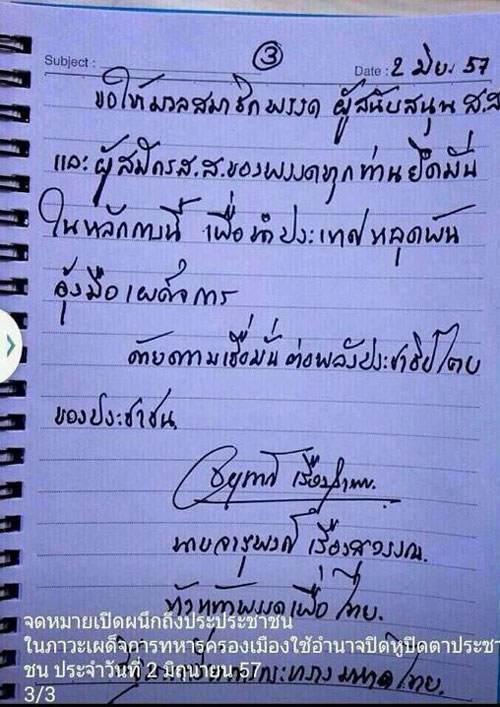 ③
Subject :
Date : 2 มิย. 57
ขอให้มวลสมาชิกพรรค ผู้สนับสนุน ส.ส
และผู้สมัครส.ส.ของพรรคทุกท่านยึดมั่น
ในหลักการนี้ เพื่อนำประเทศหลุดพ้น
อุ้งมือเผด็จการ
ด้วยความเชื่อมั่นต่อพลังประชาธิปไตย
ของประชาชน
นายจารุพงศ์ เรืองสุวรรณ.
หัวหน้าพรรคเพื่อไทย.
จดหมายเปิดผนึกถึงประประชาชน
ในภาวะเผด็จการทหารครองเมืองใช้อำนาจปิดหูปิดตาประชา
ชน ประจำวันที่ 2 มิถุนายน 57
3/3